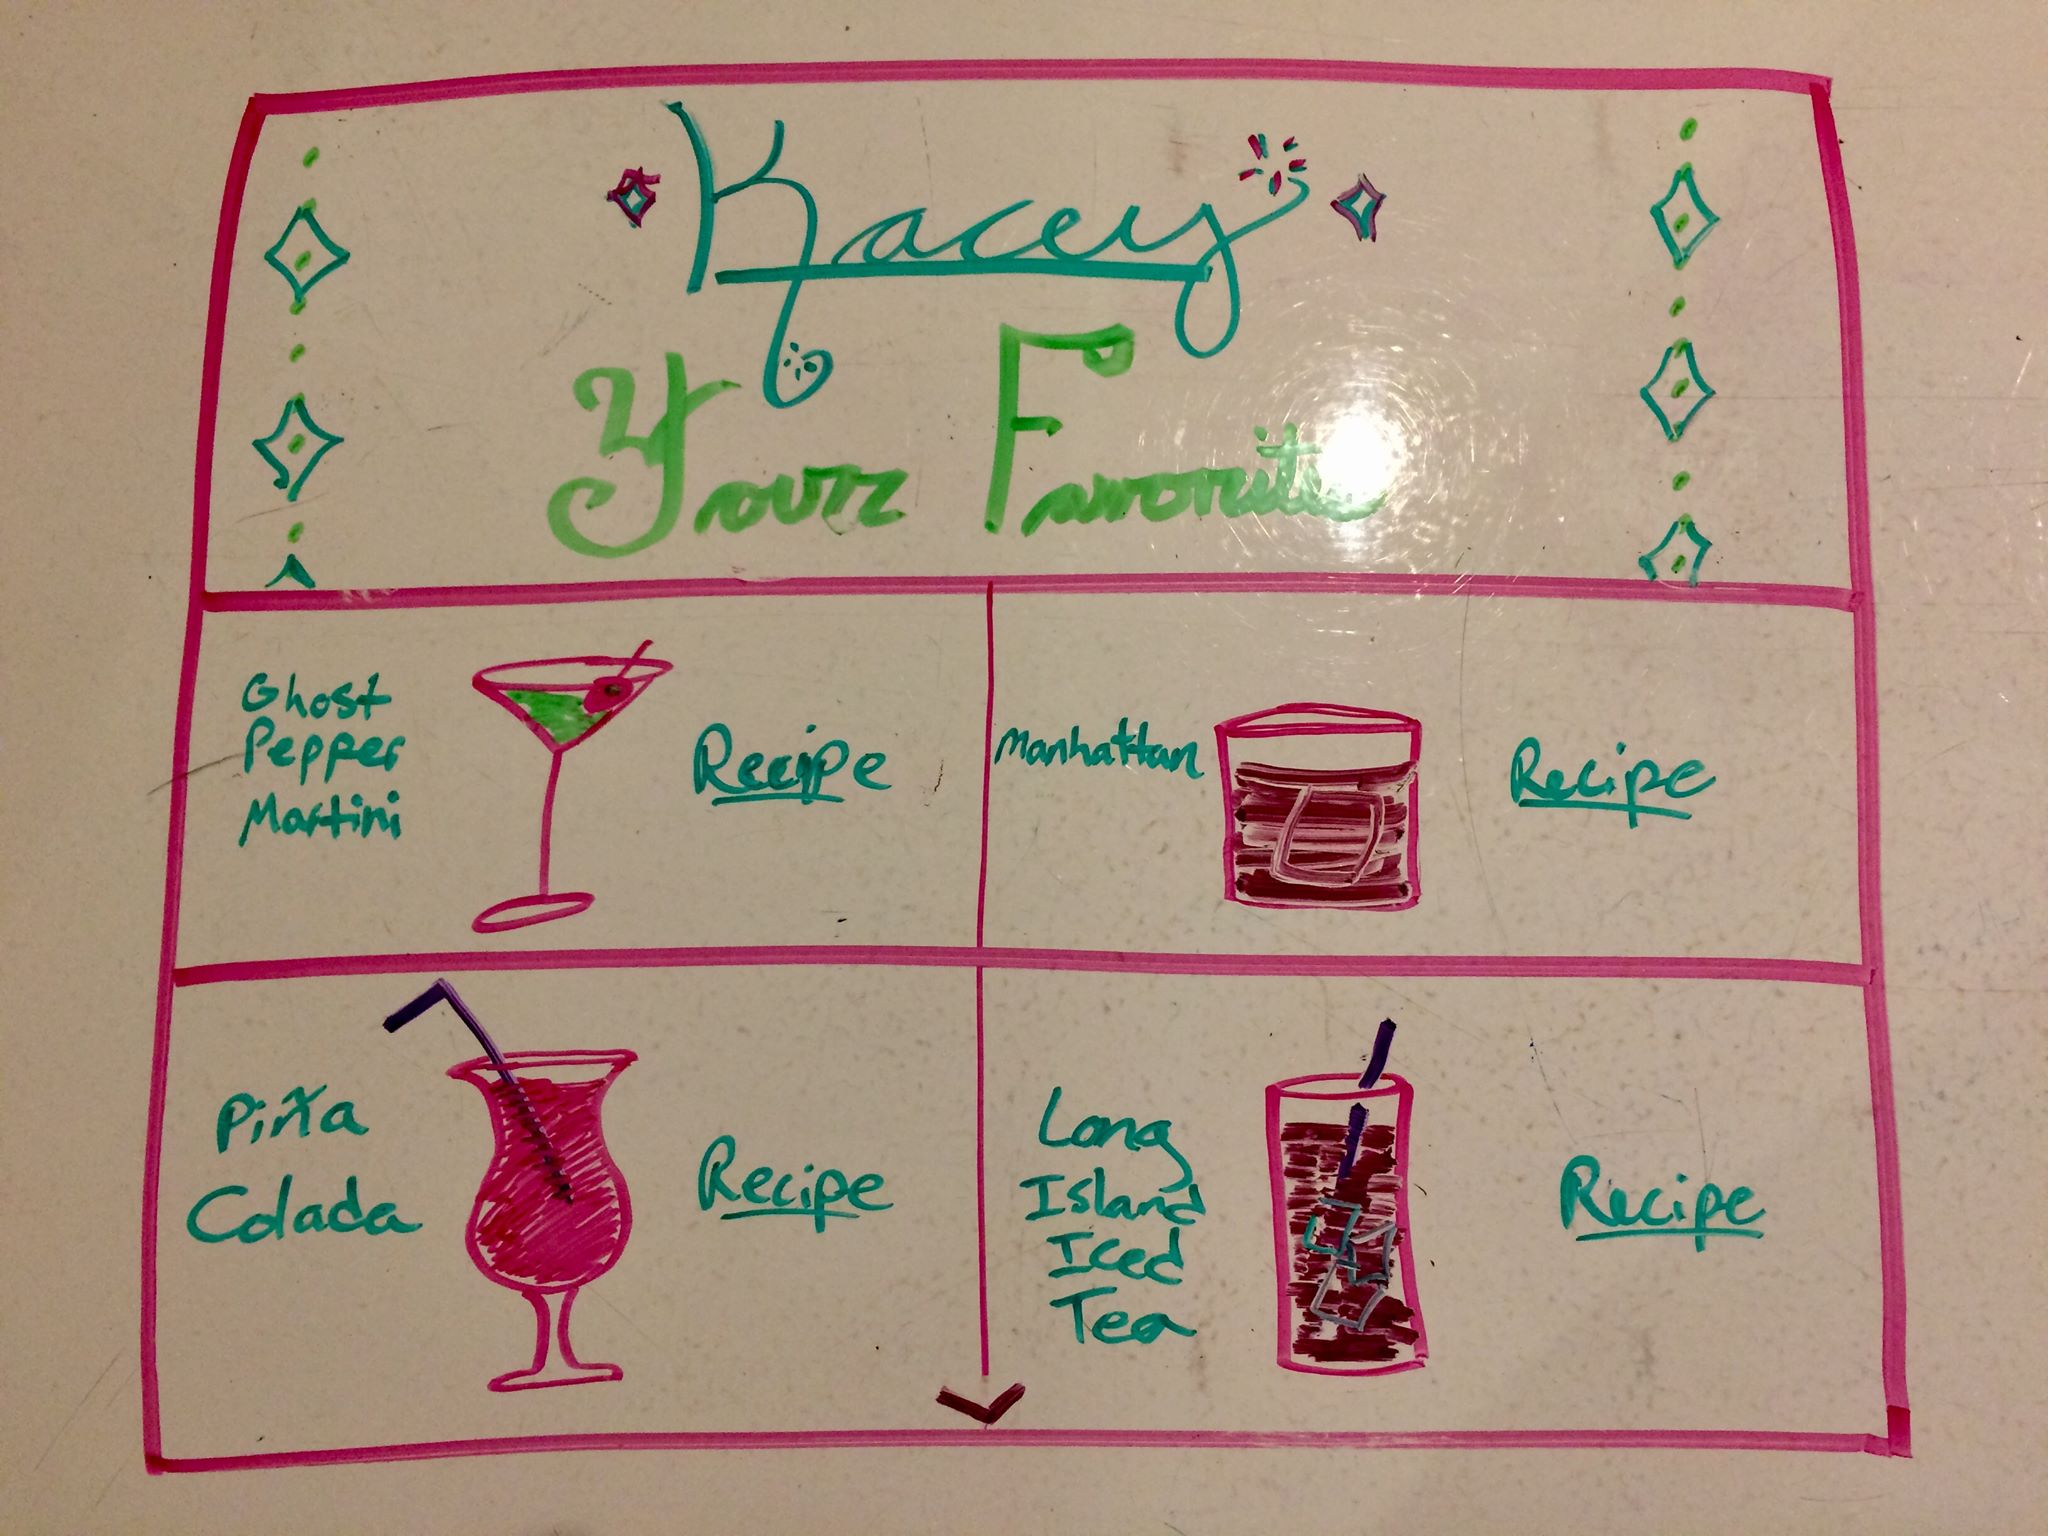 Kacey
Your Favorite
Ghost
Pepper
Martini
Recipe
Manhattan
Recipe
Piña
Colada
Recipe
Long
Island
Iced
Tea
Recipe